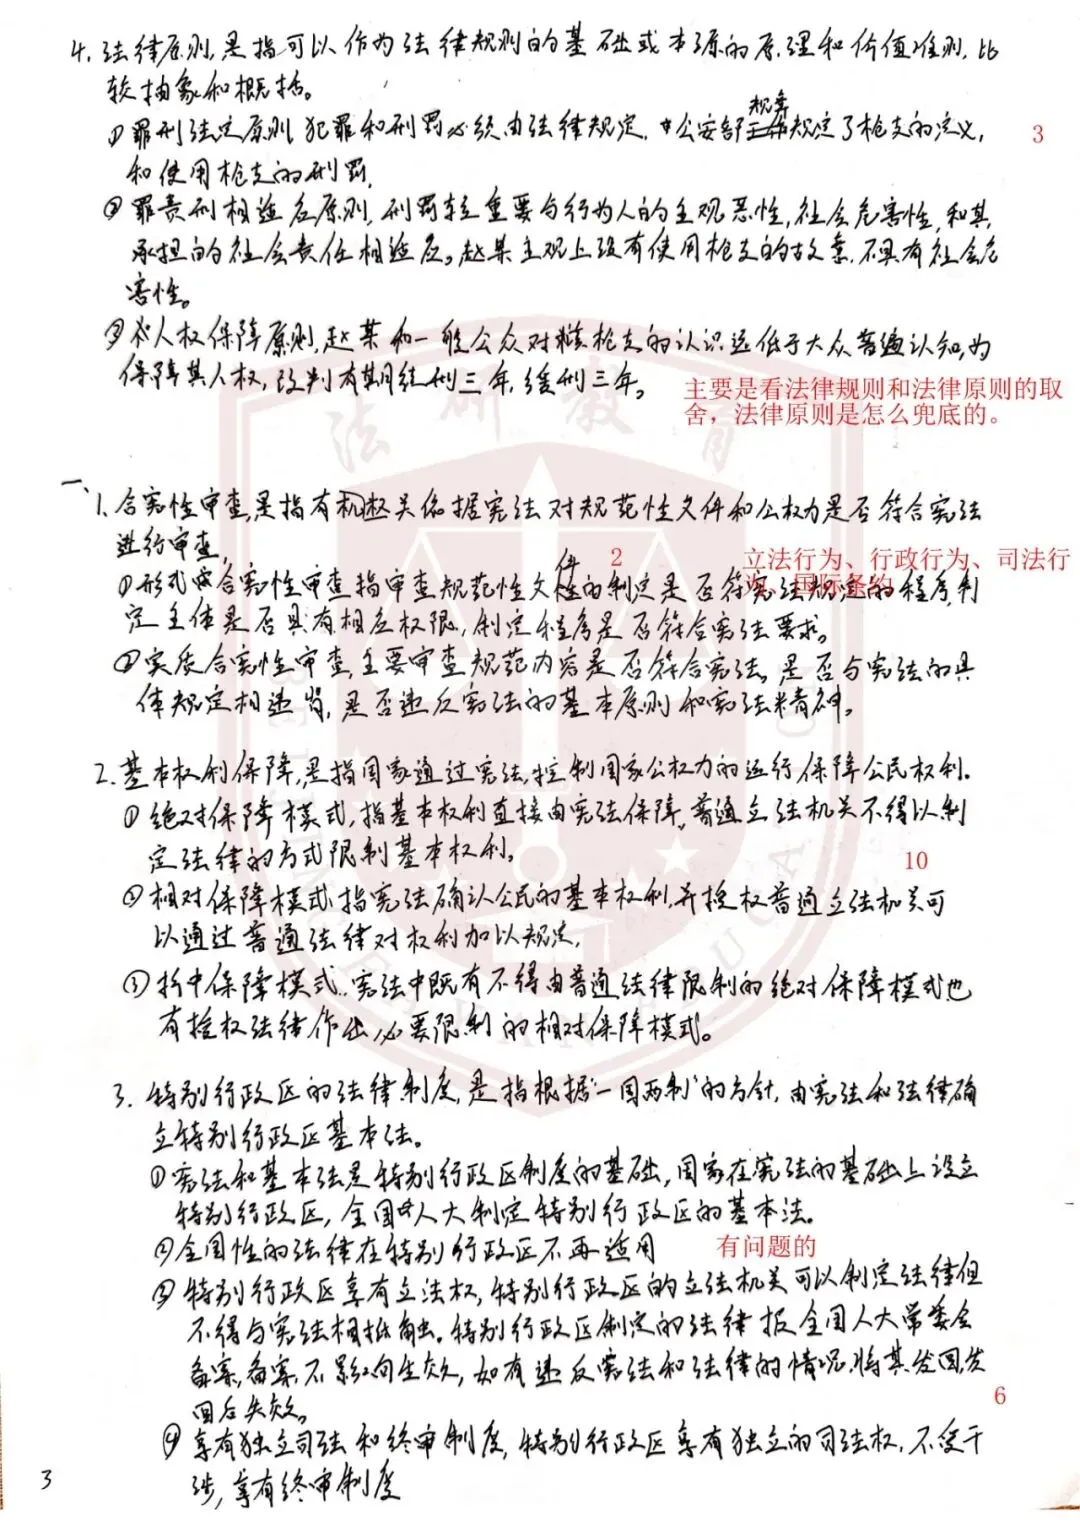 4.法律原则,是指可以作为法律规则的基础或本源的原理和价值准则,比
较抽象和概括。
①罪刑法定原则 犯罪和刑罚必须由法律规定,公安部规章规定了枪支的定义, 3
和使用枪支的刑罚,
②罪责刑相适应原则,刑罚轻重要与行为人的主观恶性,社会危害性,和其
承担的社会责任相适应。赵某主观上没有使用枪支的故意,不具有社会危
害性。
③人权保障原则,赵某和一般公众对枪支的认识远低于大众普遍认知,为
保障其人权,改判有期徒刑三年,缓刑三年。
主要是看法律规则和法律原则的取
舍,法律原则是怎么兜底的。
法研教育
一、
1.合宪性审查,是指有权机关依据宪法对规范性文件和公权力是否符合宪法
进行审查,
2 立法行为、行政行为、司法行
为、国际条约
①形式合宪性审查指审查规范性文件的制定是否符合宪法规定的程序,制
定主体是否具有相应权限,制定程序是否符合宪法要求。
②实质合宪性审查,主要审查规范内容是否符合宪法,是否与宪法的具
体规定相违背,是否违反宪法的基本原则和宪法精神。
2.基本权利保障,是指国家通过宪法,控制国家公权力的运行,保障公民权利.
①绝对保障模式,指基本权利直接由宪法保障,普通立法机关不得以制
定法律的方式限制基本权利。 10
②相对保障模式,指宪法确认公民的基本权利,并授权普通立法机关可
以通过普通法律对权利加以规定,
③折中保障模式,宪法中既有不得由普通法律限制的绝对保障模式也
有授权法律作出必要限制的相对保障模式。
3.特别行政区的法律制度,是指根据“一国两制”的方针,由宪法和法律确
立特别行政区基本法。
①宪法和基本法是特别行政区制度的基础,国家在宪法的基础上设立
特别行政区,全国人大制定特别行政区的基本法。
②全国性的法律在特别行政区不再适用 有问题的
③特别行政区享有立法权,特别行政区的立法机关可以制定法律但
不得与宪法相抵触。特别行政区制定的法律报全国人大常委会
备案,备案不影响生效,如有违反宪法和法律的情况,将其发回,发
回后失效。 6
④享有独立司法和终审制度,特别行政区享有独立的司法权,不受干
涉,享有终审制度
3